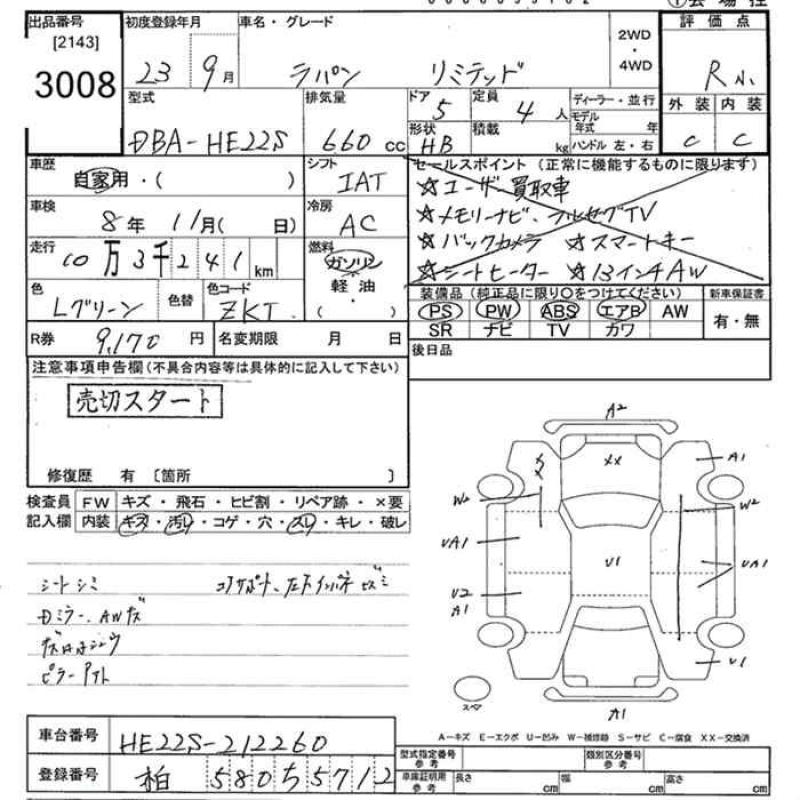 出品番号 初度登録年月 車名・グレード 評価点
[2143] 2WD
3008 23 9月 ラパン リミテッド ・ R小
4WD
型式 排気量 ドア 5 定員 4人 ディーラー・並行 外装 内装
DBA-HE22S 660 cc 形状 HB 積載 kg モデル年式 年 C C
ハンドル 左・右
車歴 シフト セールスポイント (正常に機能するものに限ります)
自家用・( ) IAT ☆ユーザー買取車
車検 冷房 ☆メモリーナビ、フルセグTV
8年 11月( 日) AC ☆バックカメラ ☆スマートキー
走行 燃料 ☆シートヒーター ☆13インチAW
10万3千241km ガソリン
軽油
( )
色 色替 色コード 装備品 (純正品に限り○をつけてください) 新車保証書
Lグリーン ZKT PS PW ABS エアB AW 有・無
SR ナビ TV カワ
R券 9,170円 名変期限 月 日 後日品
注意事項申告欄(不具合内容等は具体的に記入して下さい)
売切スタート
修復歴 有 〔箇所 〕
検査員 FW キズ・飛石・ヒビ割・リペア跡・×要
記入欄 内装 キズ・汚レ・コゲ・穴・スレ・キレ・破レ
シートシミ
Dミラー、AWキズ
ピラー
A2
XX A1
W2 W2
UA1 U1 UA1
U2
A1
U1
スペア A1
A−キズ E−エクボ U−凹み W−補修跡 S−サビ C−腐食 XX−交換済
車台番号 HE22S-212260 型式指定番号 参考 類別区分番号 参考
登録番号 柏 580 ち 5712 車庫証明用 参考 長さ cm 幅 cm 高さ cm